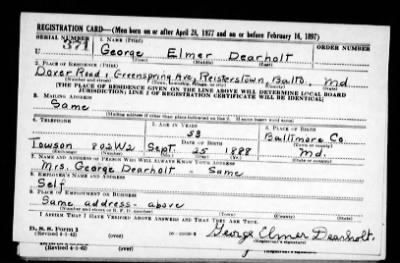 REGISTRATION CARD—(Men born on or after April 28, 1877 and on or before February 16, 1897)
SERIAL NUMBER 1. NAME (Print) ORDER NUMBER
U 371 George Elmer Dearholt
2. PLACE OF RESIDENCE (Print)
Dover Road & Greenspring Ave, Reisterstown, Balto. Md
[THE PLACE OF RESIDENCE GIVEN ON THE LINE ABOVE WILL DETERMINE LOCAL BOARD
JURISDICTION; LINE 2 OF REGISTRATION CERTIFICATE WILL BE IDENTICAL]
3. MAILING ADDRESS
Same
[Mailing address if other than place indicated on line 2. If same insert word same]
4. TELEPHONE 5. AGE IN YEARS 6. PLACE OF BIRTH
53 Baltimore Co.
DATE OF BIRTH (Town or county)
Towson 802W2 Sept. 25 1888 Md.
(Exchange) (Number) (Mo.) (Day) (Yr.) (State or country)
7. NAME AND ADDRESS OF PERSON WHO WILL ALWAYS KNOW YOUR ADDRESS
Mrs. George Dearholt - Same
8. EMPLOYER'S NAME AND ADDRESS
Self
9. PLACE OF EMPLOYMENT OR BUSINESS
Same address - above
(Number and street or R. F. D. number) (Town) (County) (State)
I AFFIRM THAT I HAVE VERIFIED ABOVE ANSWERS AND THAT THEY ARE TRUE.
D. S. S. Form 1
(Revised 4-1-42) (over) George Elmer Dearholt.
(Registrant's signature)